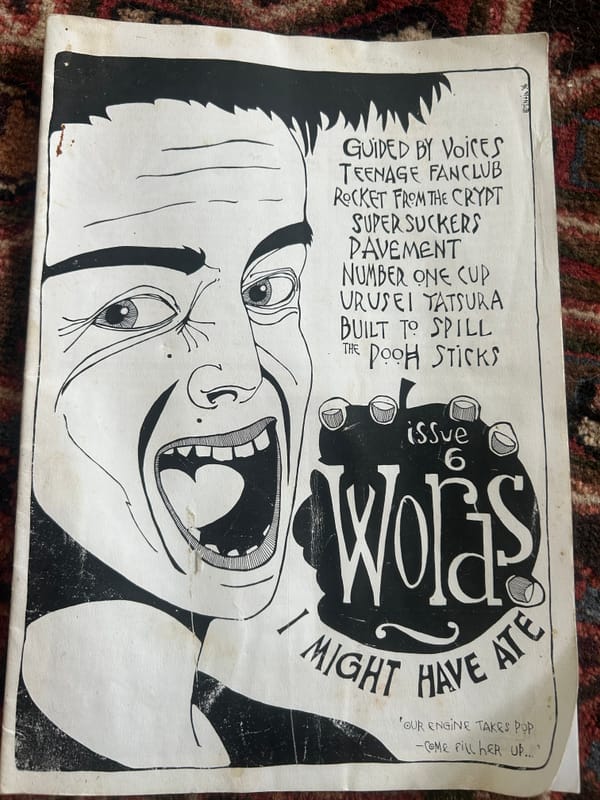 GUIDED BY VOICES
TEENAGE FANCLUB
ROCKET FROM THE CRYPT
SUPERSUCKERS
PAVEMENT
NUMBER ONE CUP
URUSEI YATSURA
BUILT TO SPILL
THE POOH STICKS
issue
6
Words
I MIGHT HAVE ATE
'OUR ENGINE TAKES POP
-COME FILL HER UP...'